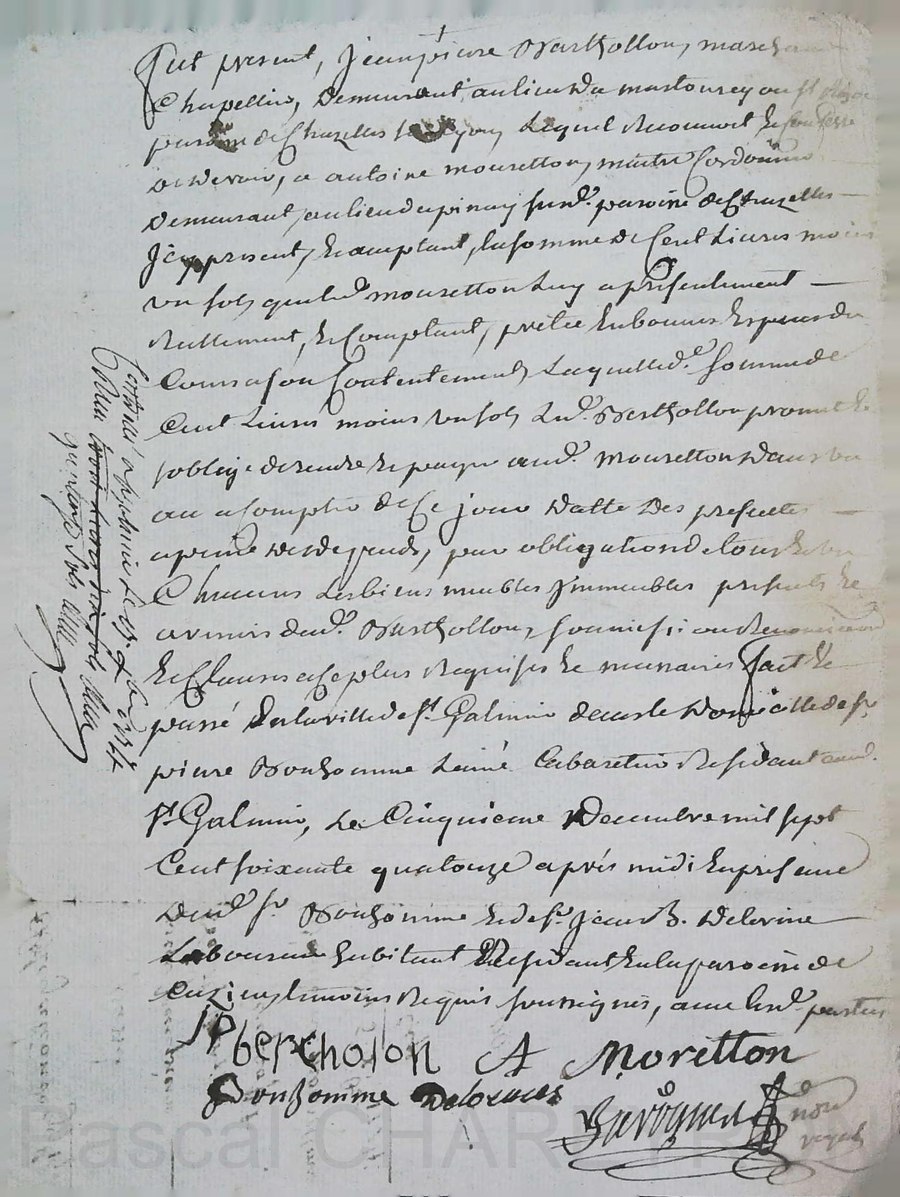 fut present, Jean pierre Barthollon, marchand
Chapellier, Demeurant au lieu Du
paroisse de Chazelles Lequel Reconnoit & Confesse
et devoir, a antoine mouretton, maitre Cordonnier
Demeurant, au lieu du pinay susd. paroisse de Chazelles
Icy present, & acceptant, la somme de Cent Livres moins
un sols, que led. mouretton Luy a présentement
Reellement, & Comptant, pretée En bonnes Especes du
Cours a son Contentement, Laquelle de. Somme de
Cent Livres moins un sols, Led. Barthollon promet &
soblige de rendre & payer aud. mouretton Dans un
an a compter de Ce jour Datte Des presentes
a peine de Dépends, par obligation De tous & un
Chacuns Les biens meubles Immeubles presents &
avenirs dud. Barthollon, soumission Renonciation
& Clauses a Ce plus Requises & necessaires fait &
passé En la ville de st. Galmier dans le Domicille de sr.
pierre Bonhomme Lainé Cabaretier Residant aud.
St. Galmier, Le Cinquieme Decembre mil sept
Cent soixante quatorze après midi En présence
Dud. sr. Bonhomme & de sr. Jean B. Delorme
Laboureur habitant Residant En la paroisse de
Cuzieu, temoins Requis soussignés, avec Lesd. parties
JP berthoLon A Moretton
Bonhomme Delorme
no.re
royal
Controllé a st galmier Le 1774
Reçu
quatorze sols
Pascal CHARTRON